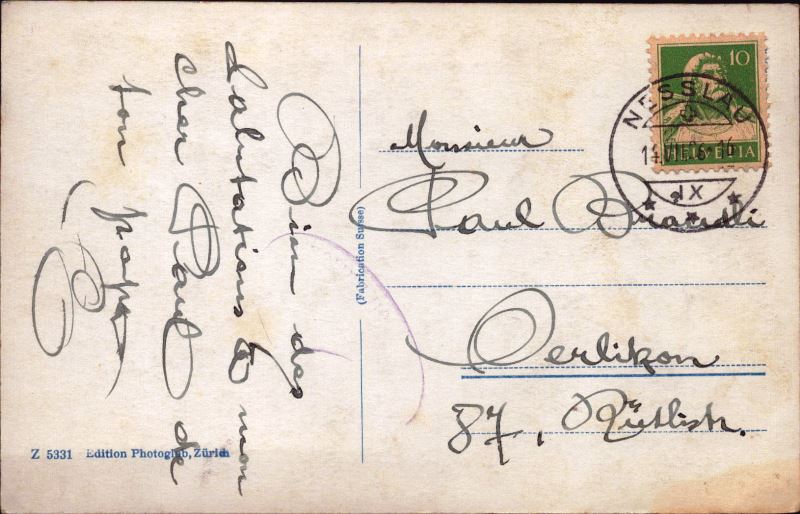 Bien des
Salutations à mon
cher Paul de
ton papa
Monsieur
Paul Brandli
Oerlikon
87, Rütlistr.
(Fabrication Suisse)
Z 5331 Edition Photoglob, Zürich
10
HELVETIA
NESSLAU
IX